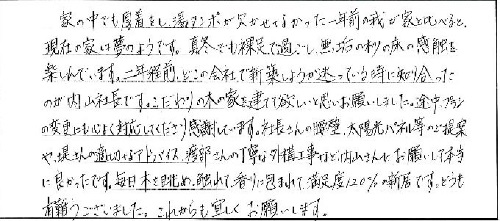 家の中でも厚着をし、湯タンポが欠かせなかった一年前の我が家と比べると、
現在の家は夢のようです。真冬でも裸足で過ごし、無垢の杉の床の感触を
楽しんでいます。二年程前、どこの会社で新築しようか迷っている時に知り合った
のが内山社長です。こだわりの木の家を建て欲しいと思いお願いしました。途中、プラン
の変更にも心よく対応してくださり感謝しています。社長さんの 太陽光パネル等のご提案
や、堤さんの適切なるアドバイス、渡部さんの丁寧な外構工事など内山さんにお願いして本当
に良かったです。毎日木を眺め、触れて、香りに包まれて、満足度120%の新居です。どうも
有難うございました。これからも宜しくお願いします。